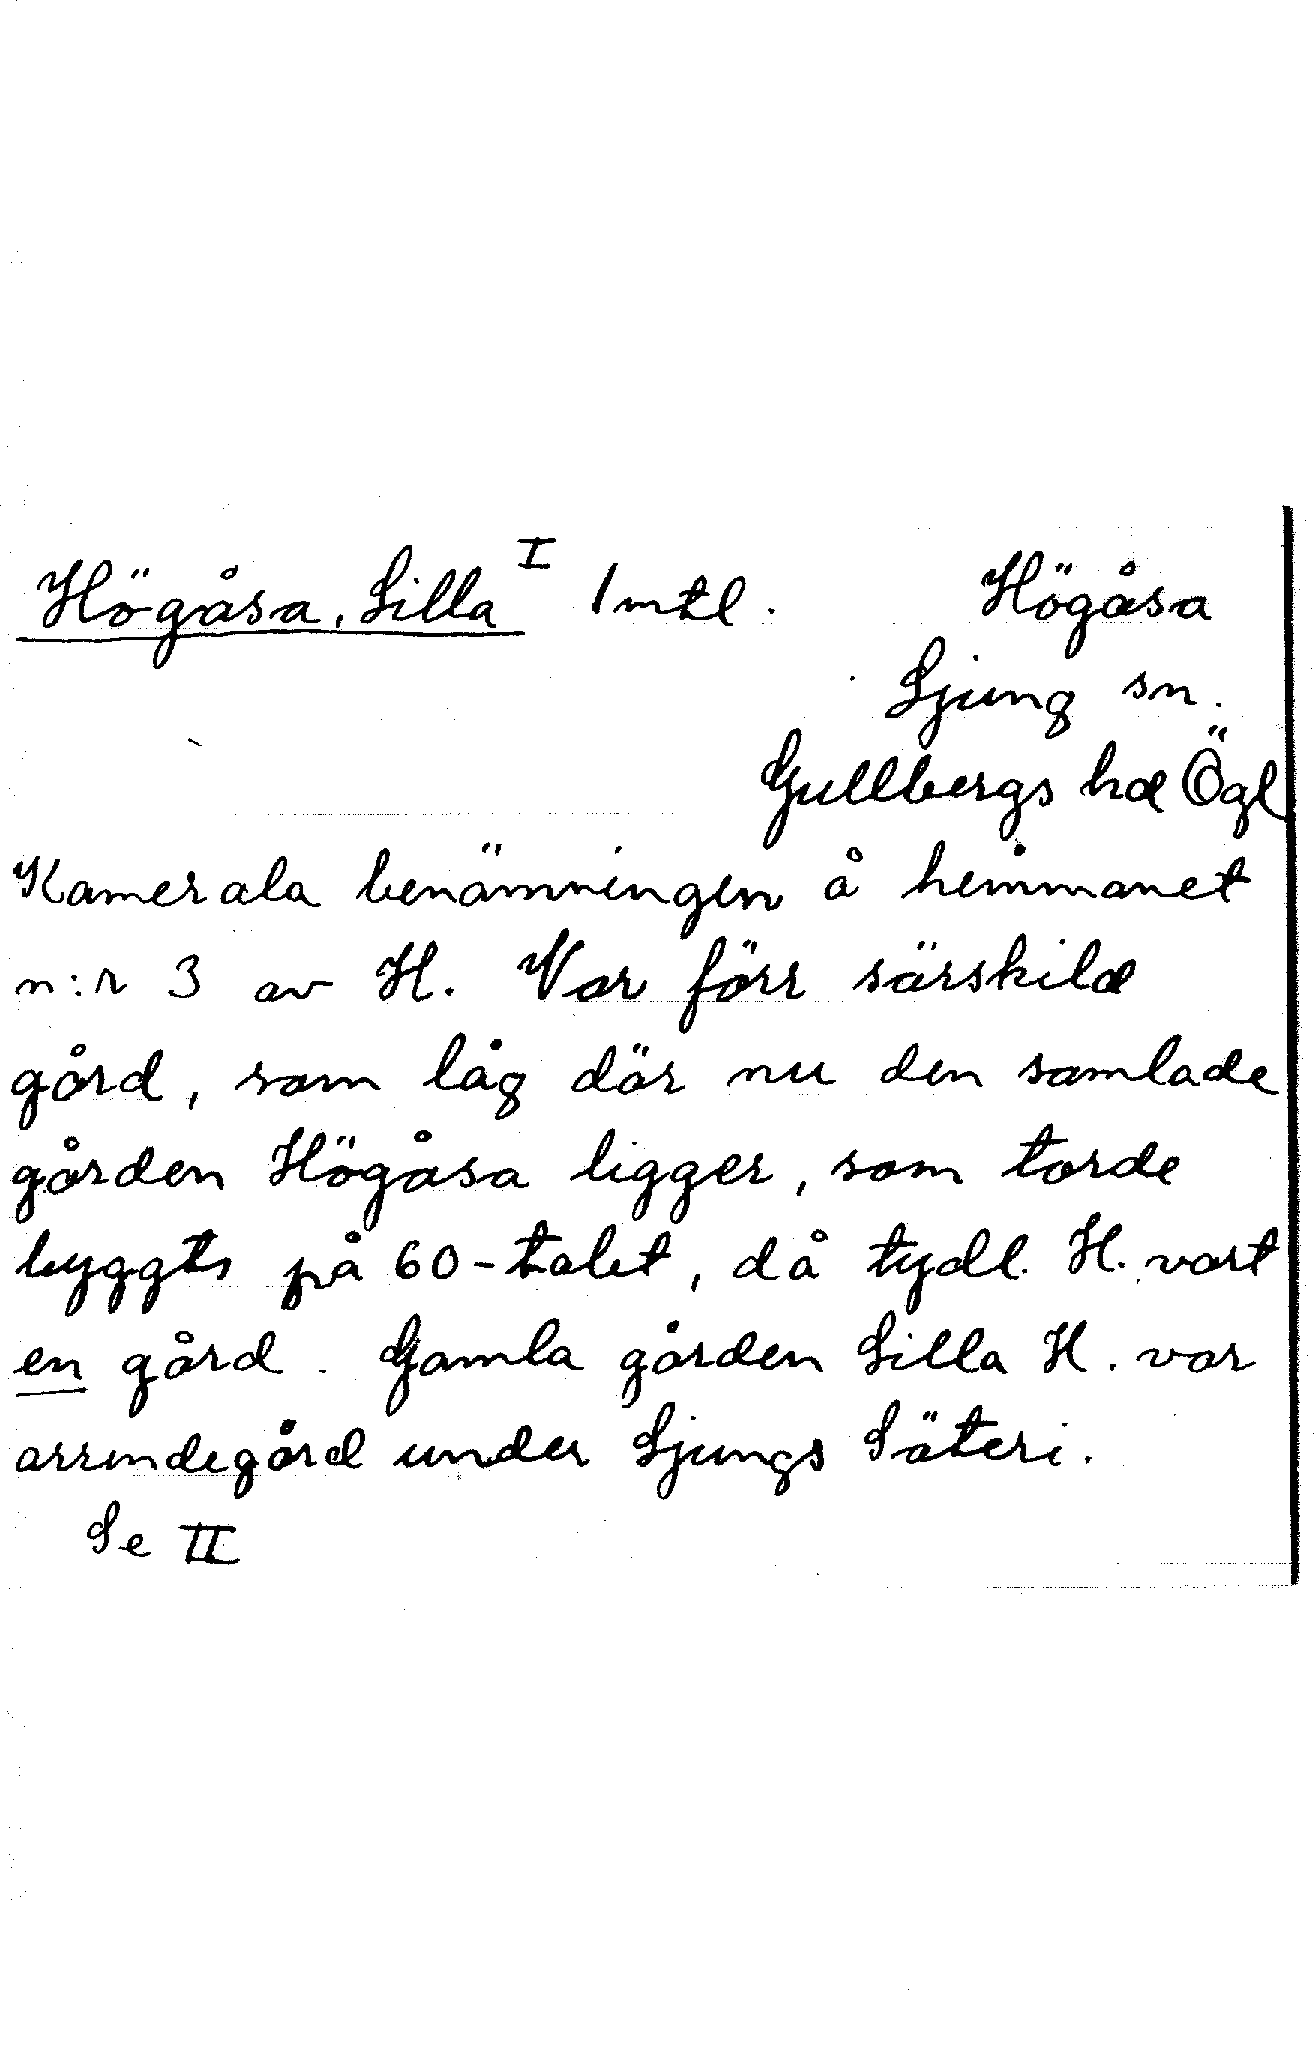 Högåsa, Lilla I 1 mtl. Högåsa
Ljung sn.
Gullbergs hd Ögl
Kamerala benämningen å hemmanet
n:r 3 av H. Var förr särskild
gård, som låg där nu den samlade
gården Högåsa ligger, som torde
byggts på 60-talet, då tydl. H. vart
en gård. Gamla gården Lilla H. var
arrendegård under Ljungs Säteri.
Se II